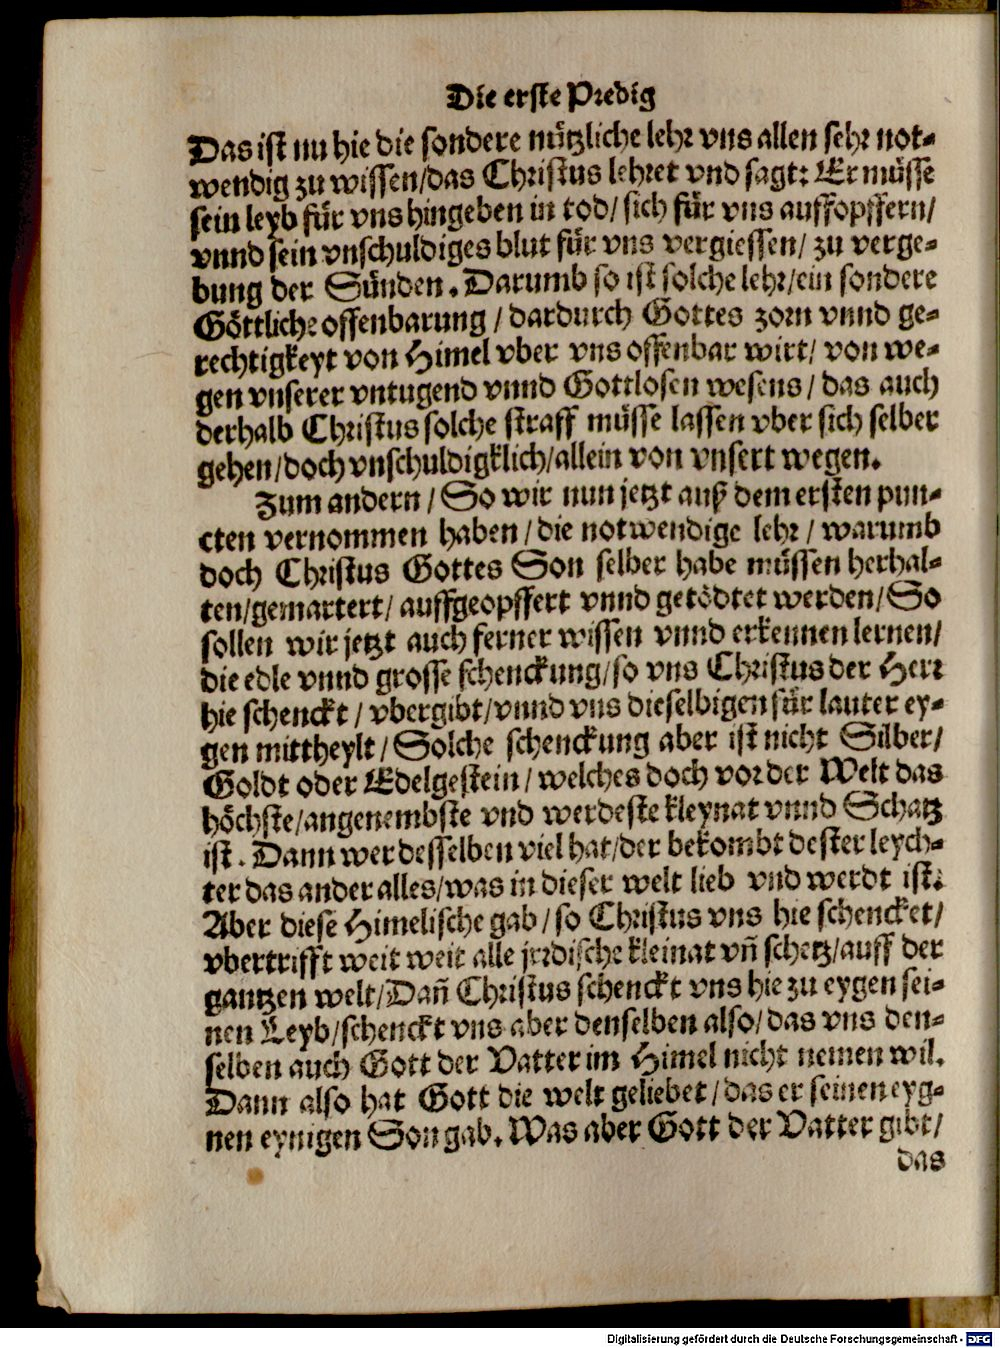 Die erste Predig
Das ist nu hie die sondere nützliche lehr vns allen sehr not-
wendig zu wissen/das Christus lehret vnd sagt: Er müsse
sein leyb für vns hingeben in tod/ sich für vns auffopffern/
vnnd sein vnschuldiges blut für vns vergiessen/ zu verge-
bung der Sünden. Darumb so ist solche lehr/ein sondere
Göttliche offenbarung / dardurch Gottes zorn vnnd ge-
rechtigkeyt von Himel vber vns offenbar wirt/ von we-
gen vnserer vntugend vnnd Gottlosen wesens / das auch
derhalb Christus solche straff müsse lassen vber sich selber
gehen/doch vnschuldigklich/allein von vnsert wegen.
Zum andern / So wir nun jetzt auß dem ersten pun-
cten vernommen haben / die notwendige lehr / warumb
doch Christus Gottes Son selber habe müssen herhal-
ten/gemartert/ auffgeopffert vnnd getödtet werden/ So
sollen wir jetzt auch ferner wissen vnnd erkennen lernen/
die edle vnnd grosse schenckung/so vns Christus der Herr
hie schenckt / vbergibt/vnnd vns dieselbigen für lauter ey-
gen mittheylt / Solche schenckung aber ist nicht Silber/
Goldt oder Edelgestein / welches doch vor der Welt das
höchste/angenembste vnd werdeste kleynat vnnd Schatz
ist. Dann wer desselben viel hat/der bekombt dester leych-
ter das ander alles/was in dieser welt lieb vnd werdt ist.
Aber diese Himelische gab / so Christus vns hie schencket/
vbertrifft weit weit alle jrrdische kleinat vñ schetz/auff der
gantzen welt/Dañ Christus schenckt vns hie zu eygen sei-
nen Leyb/schenckt vns aber denselben also/das vns den-
selben auch Gott der Vatter im Himel nicht nemen wil.
Dann also hat Gott die welt geliebet / das er seinen eyg-
nen eynigen Son gab. Was aber Gott der Vatter gibt/
das
Digitalisierung gefördert durch die Deutsche Forschungsgemeinschaft - DFG